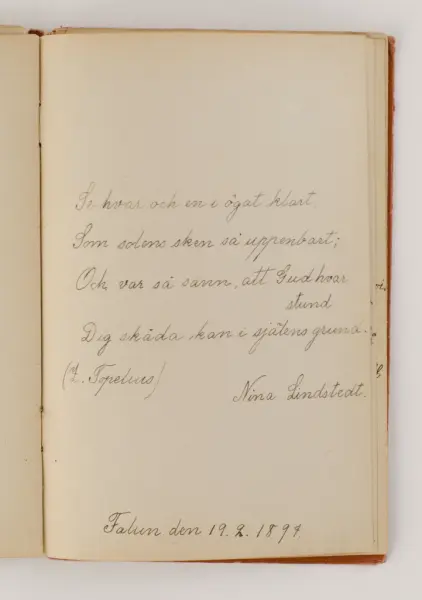 Se hvar och en i ögat klart
Som solens sken så uppenbart;
Och var så sann, att Gud hvar
stund
Dig skåda kan i själens grund.
(Z. Topelius)
Nina Lindstedt.
Falun den 19.2.1894.